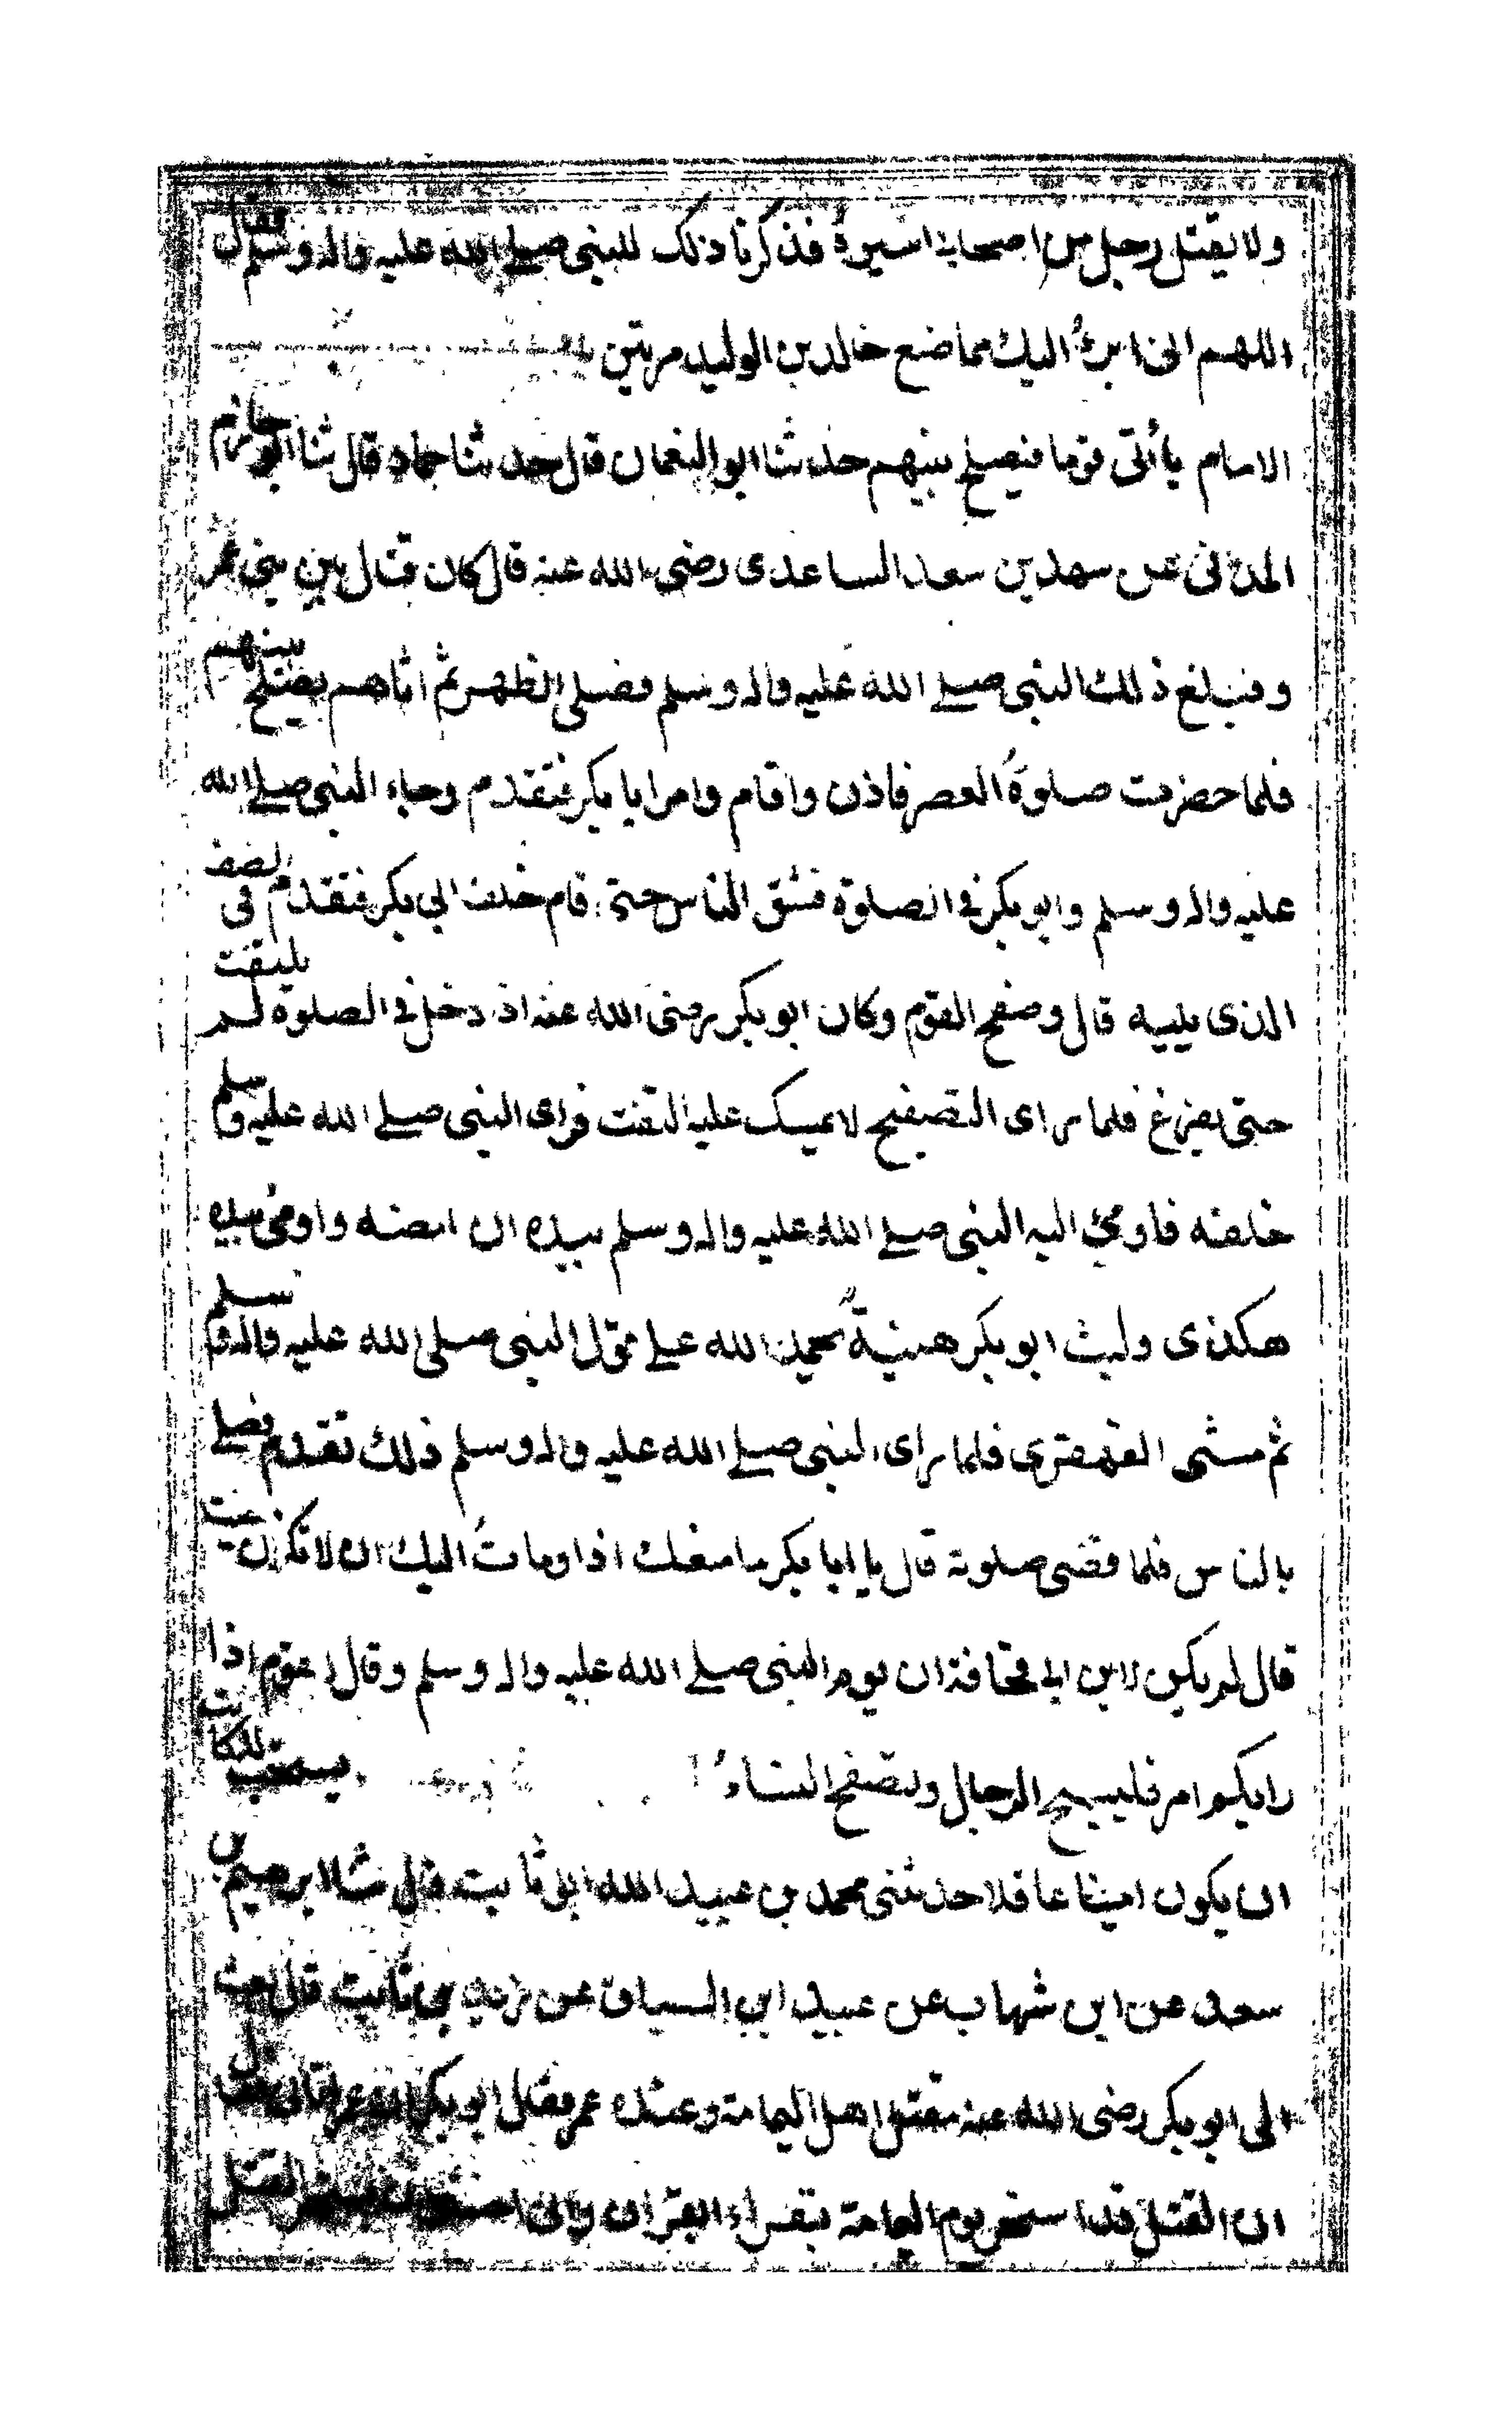 ولا يقتل رجل من اصحابي اسيره فذكرنا ذلك للنبي صلى الله عليه واله وسلم فقال
اللهم اني ابرئ اليك مما صنع خالد بن الوليد مرتين
الامام يأتي قوما فيصلح بينهم حدثنا ابو النعمان قال حدثنا حماد قال ثنا ابو حازم
المدني عن سهد بن سعد الساعدي رضي الله عنه قال كان قتال بين بني عمر
و فبلغ ذلك النبي صلى الله عليه واله وسلم فصلى الظهر ثم اتاهم يصلح بينهم
فلما حضرت صلوة العصر فاذن واقام وامر ابا بكر فتقدم وجاء النبي صلى الله
عليه واله وسلم وابو بكر في الصلوة فشق الناس حتى قام خلف ابي بكر فتقدم في الصف
الذي يليه قال وصفح القوم وكان ابو بكر رضى الله عنه اذ دخل في الصلوة لم يلتفت
حتى يفرغ فلما راى التصفيح لا يمسك عليه التفت فراى النبي صلى الله عليه وسلم
خلفه فاومئ اليه النبي صلى الله عليه واله وسلم بيده ان امضه واومئ بيده
هكذى ولبث ابو بكر هنية يحمد الله على قول النبي صلى الله عليه واله وسلم
ثم مشى القهقرى فلما راى النبي صلى الله عليه واله وسلم ذلك تقدم فصلى
بالناس فلما قضى صلوته قال يا ابا بكر ما منعك اذ اومات اليك ان لا تكون
قال لم يكن لابن ابي قحافة ان يوم النبي صلى الله عليه واله وسلم وقال لقوم اذا
رابكم امر فليسبح الرجال وليصفح النساء يستحب للكاتب
ان يكون امينا عاقلا حدثني محمد بن عبيد الله ابو ثابت قال ثنا ابرهيم بن
سعد عن ابن شهاب عن عبيد ابن السباق عن زيد بن ثابت قال بعث
الى ابو بكر رضى الله عنه مقتل اهل اليمامة وعنده عمر فقال ابو بكر
ان القتل قد استحر يوم اليمامة بقراء القران واني القتل